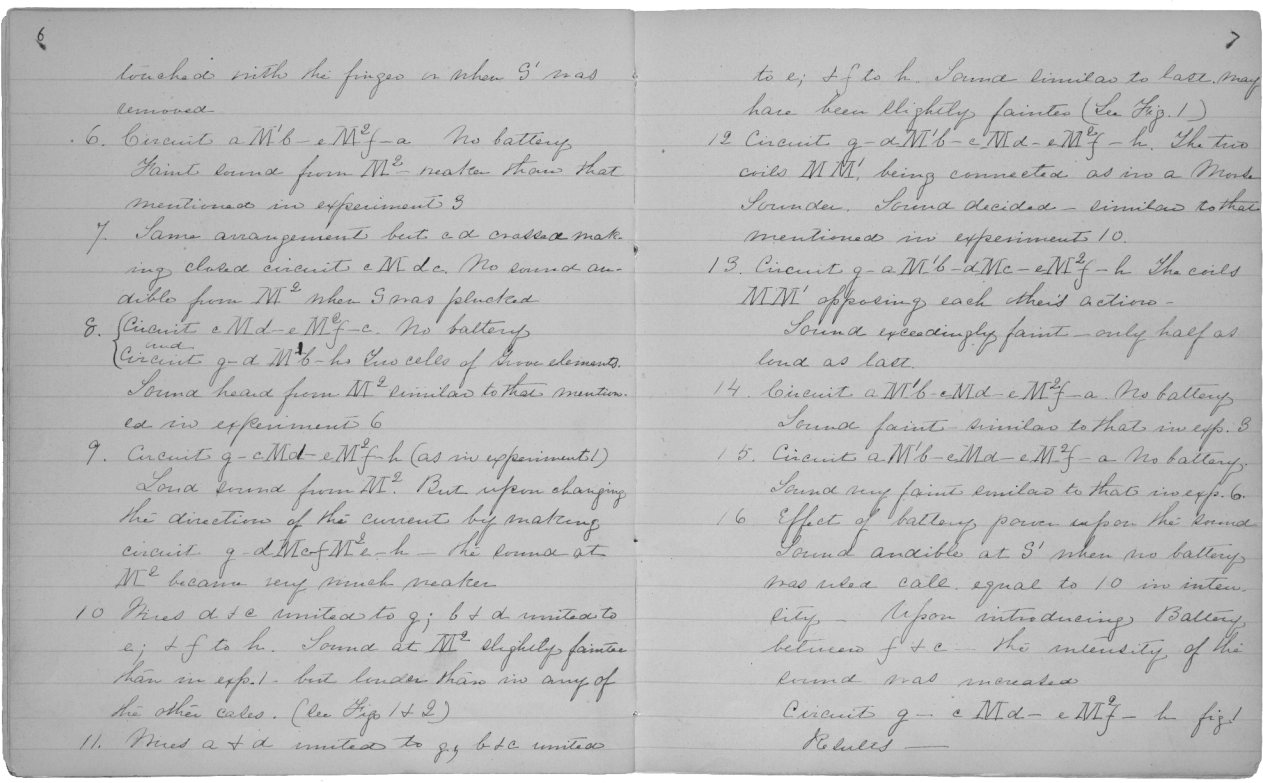 6
touched with the finger or when S' was
removed
6. Circuit a M'b – e M²f – a No battery
Faint sound from M² – weaker than that
mentioned in experiment 3
7. Same arrangement but c d crossed mak-
ing closed circuit c M d c. No sound au-
dible from M² when S was plucked
8. Circuit c M d – e M²f – c. No battery
and
Circuit g – d M'b – h. Two cells of Grove elements.
Sound heard from M² similar to that mention-
ed in experiment 6
9. Circuit g – c M d – e M²f – h (as in experiment 1)
Loud sound from M². But upon changing
the direction of the current by making
circuit g – d M c – f M²e – h – the sound at
M² became very much weaker
10 Wires d & c united to g; b & d united to
e; & f to h. Sound at M² slightly fainter
than in exp. 1 – but louder than in any of
the other cases. (See Fig 1 & 2)
11. Wires a & d united to g, b & c united
7
to e; & f to h. Sound similar to last. may
have been slightly fainter (See Fig. 1)
12 Circuit g – d M'b – c M d – e M²f – h. The two
coils M M', being connected as in a Morse
Sounder. Sound decided – similar to that
mentioned in experiment 10.
13. Circuit g – a M'b – d M c – e M²f – h The coils
M M' opposing each other's action –
Sound exceedingly faint – only half as
loud as last.
14. Circuit a M'b – c M d – e M²f – a. No battery
Sound faint – similar to that in exp. 3
15. Circuit a M'b – c M d – e M²f – a No battery.
Sound very faint similar to that in exp. 6.
16 Effect of battery power upon the sound
Sound audible at S' when no battery
was used call equal to 10 in inten-
sity – Upon introducing Battery
between f & c – the intensity of the
sound was increased
Circuit g – c M d – e M²f – h fig. 1
Results —